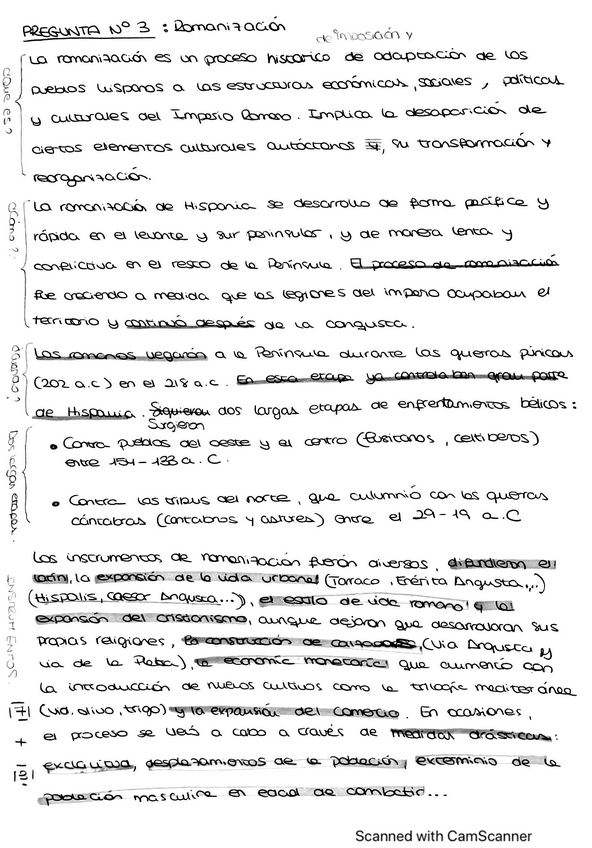 PREGUNTA Nº 3 : Romanización
de imposición y
¿Qué es?
La romanización es un proceso histórico de adaptación de los
pueblos hispanos a las estructuras económicas, sociales, políticas
y culturales del Imperio Romano. Implica la desaparición de
ciertos elementos culturales autóctonos y, su transformación y
reorganización.
¿Cómo?
La romanización de Hispania se desarrollo de forma pacífica y
rápida en el levante y sur peninsular, y de manera lenta y
conflictiva en el resto de la Península. El proceso de romanización
fue creciendo a medida que las legiones del imperio ocupaban el
territorio y continuó después de la conquista.
Los romanos llegarón a la Península durante las guerras púnicas
(202 a.c) en el 218 a.c. En esta etapa ya controlaban gran parte
de Hispania. Siguieron dos largas etapas de enfrentamientos bélicos:
Surgieron
Dos largas etapas.
• Contra pueblos del oeste y el centro (lusitanos, celtiberos)
entre 154-133 a.C.
• Contra las tribus del norte, que culumnió con las guerras
cántabras (cantabros y astures) entre el 29-19 a.C
INSTRUMENTOS.
Los instrumentos de romanización fuerón diversos, difundieron el
latín, la expansión de la vida urbana (Tarraco, Emérita Angusta,..)
(Hispalis, caesar Angusta...), el estilo de vida romano y la
expansión del cristianismo, aunque dejaron que desarrollaran sus
propias religiones, la construcción de calzadas, (Via Angusta y
via de la Plata), la economía monetaria que aumentó con
la introducción de nuevos cultivos como la trilogía mediterránea
(vid, olivo, trigo) y la expansión del comercio. En ocasiones,
el proceso se llevó a cabo a través de medidas drásticas:
esclavitud, desplazamientos de la población, exterminio de la
población masculina en edad de combatir...
Scanned with CamScanner